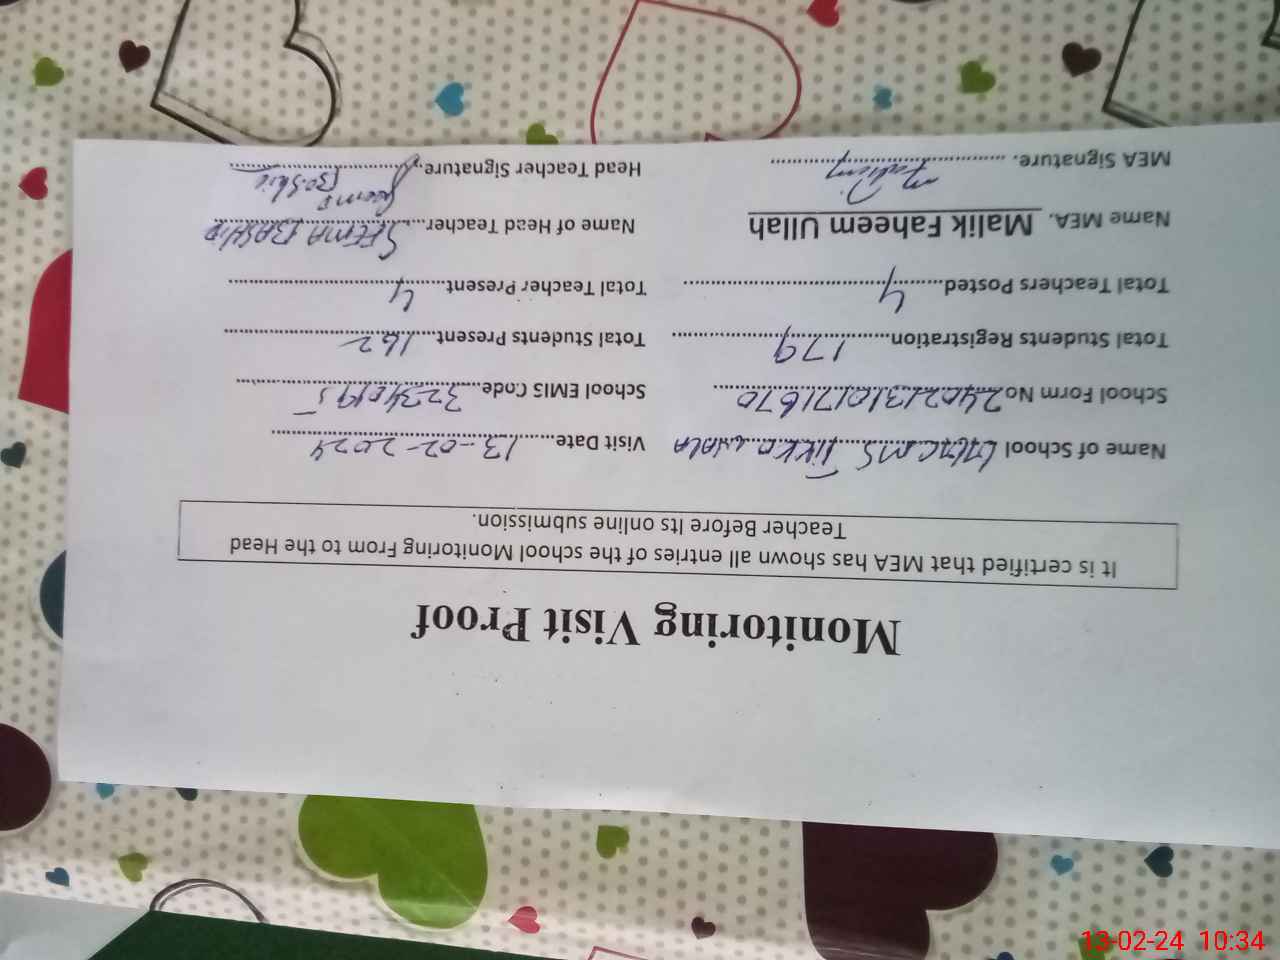 Monitoring Visit Proof
It is certified that MEA has shown all entries of the school Monitoring From to the Head
Teacher Before Its online submission.
Name of School TIKKA WALA Visit Date 13-02-2024
School Form No 24021310171670 School EMIS Code 32340195
Total Students Registration 179 Total Students Present 162
Total Teachers Posted 4 Total Teacher Present 4
Name MEA. Malik Faheem Ullah Name of Head Teacher. SEEMA BASHIR
MEA Signature. Faheem Head Teacher Signature. Seema Bashir
13-02-24 10:34